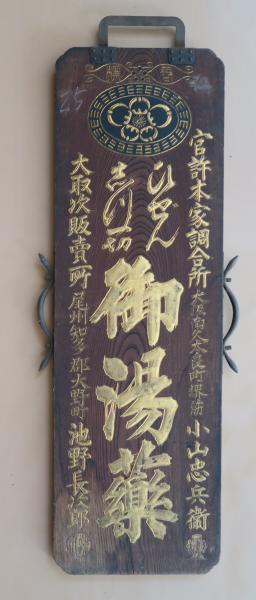 官許本家調合所 大阪南久太良町堺筋 小山忠兵衞
ひぜん
志つ一切
御湯藥
大取次販賣所 尾州知多郡大野町 池野長次郎